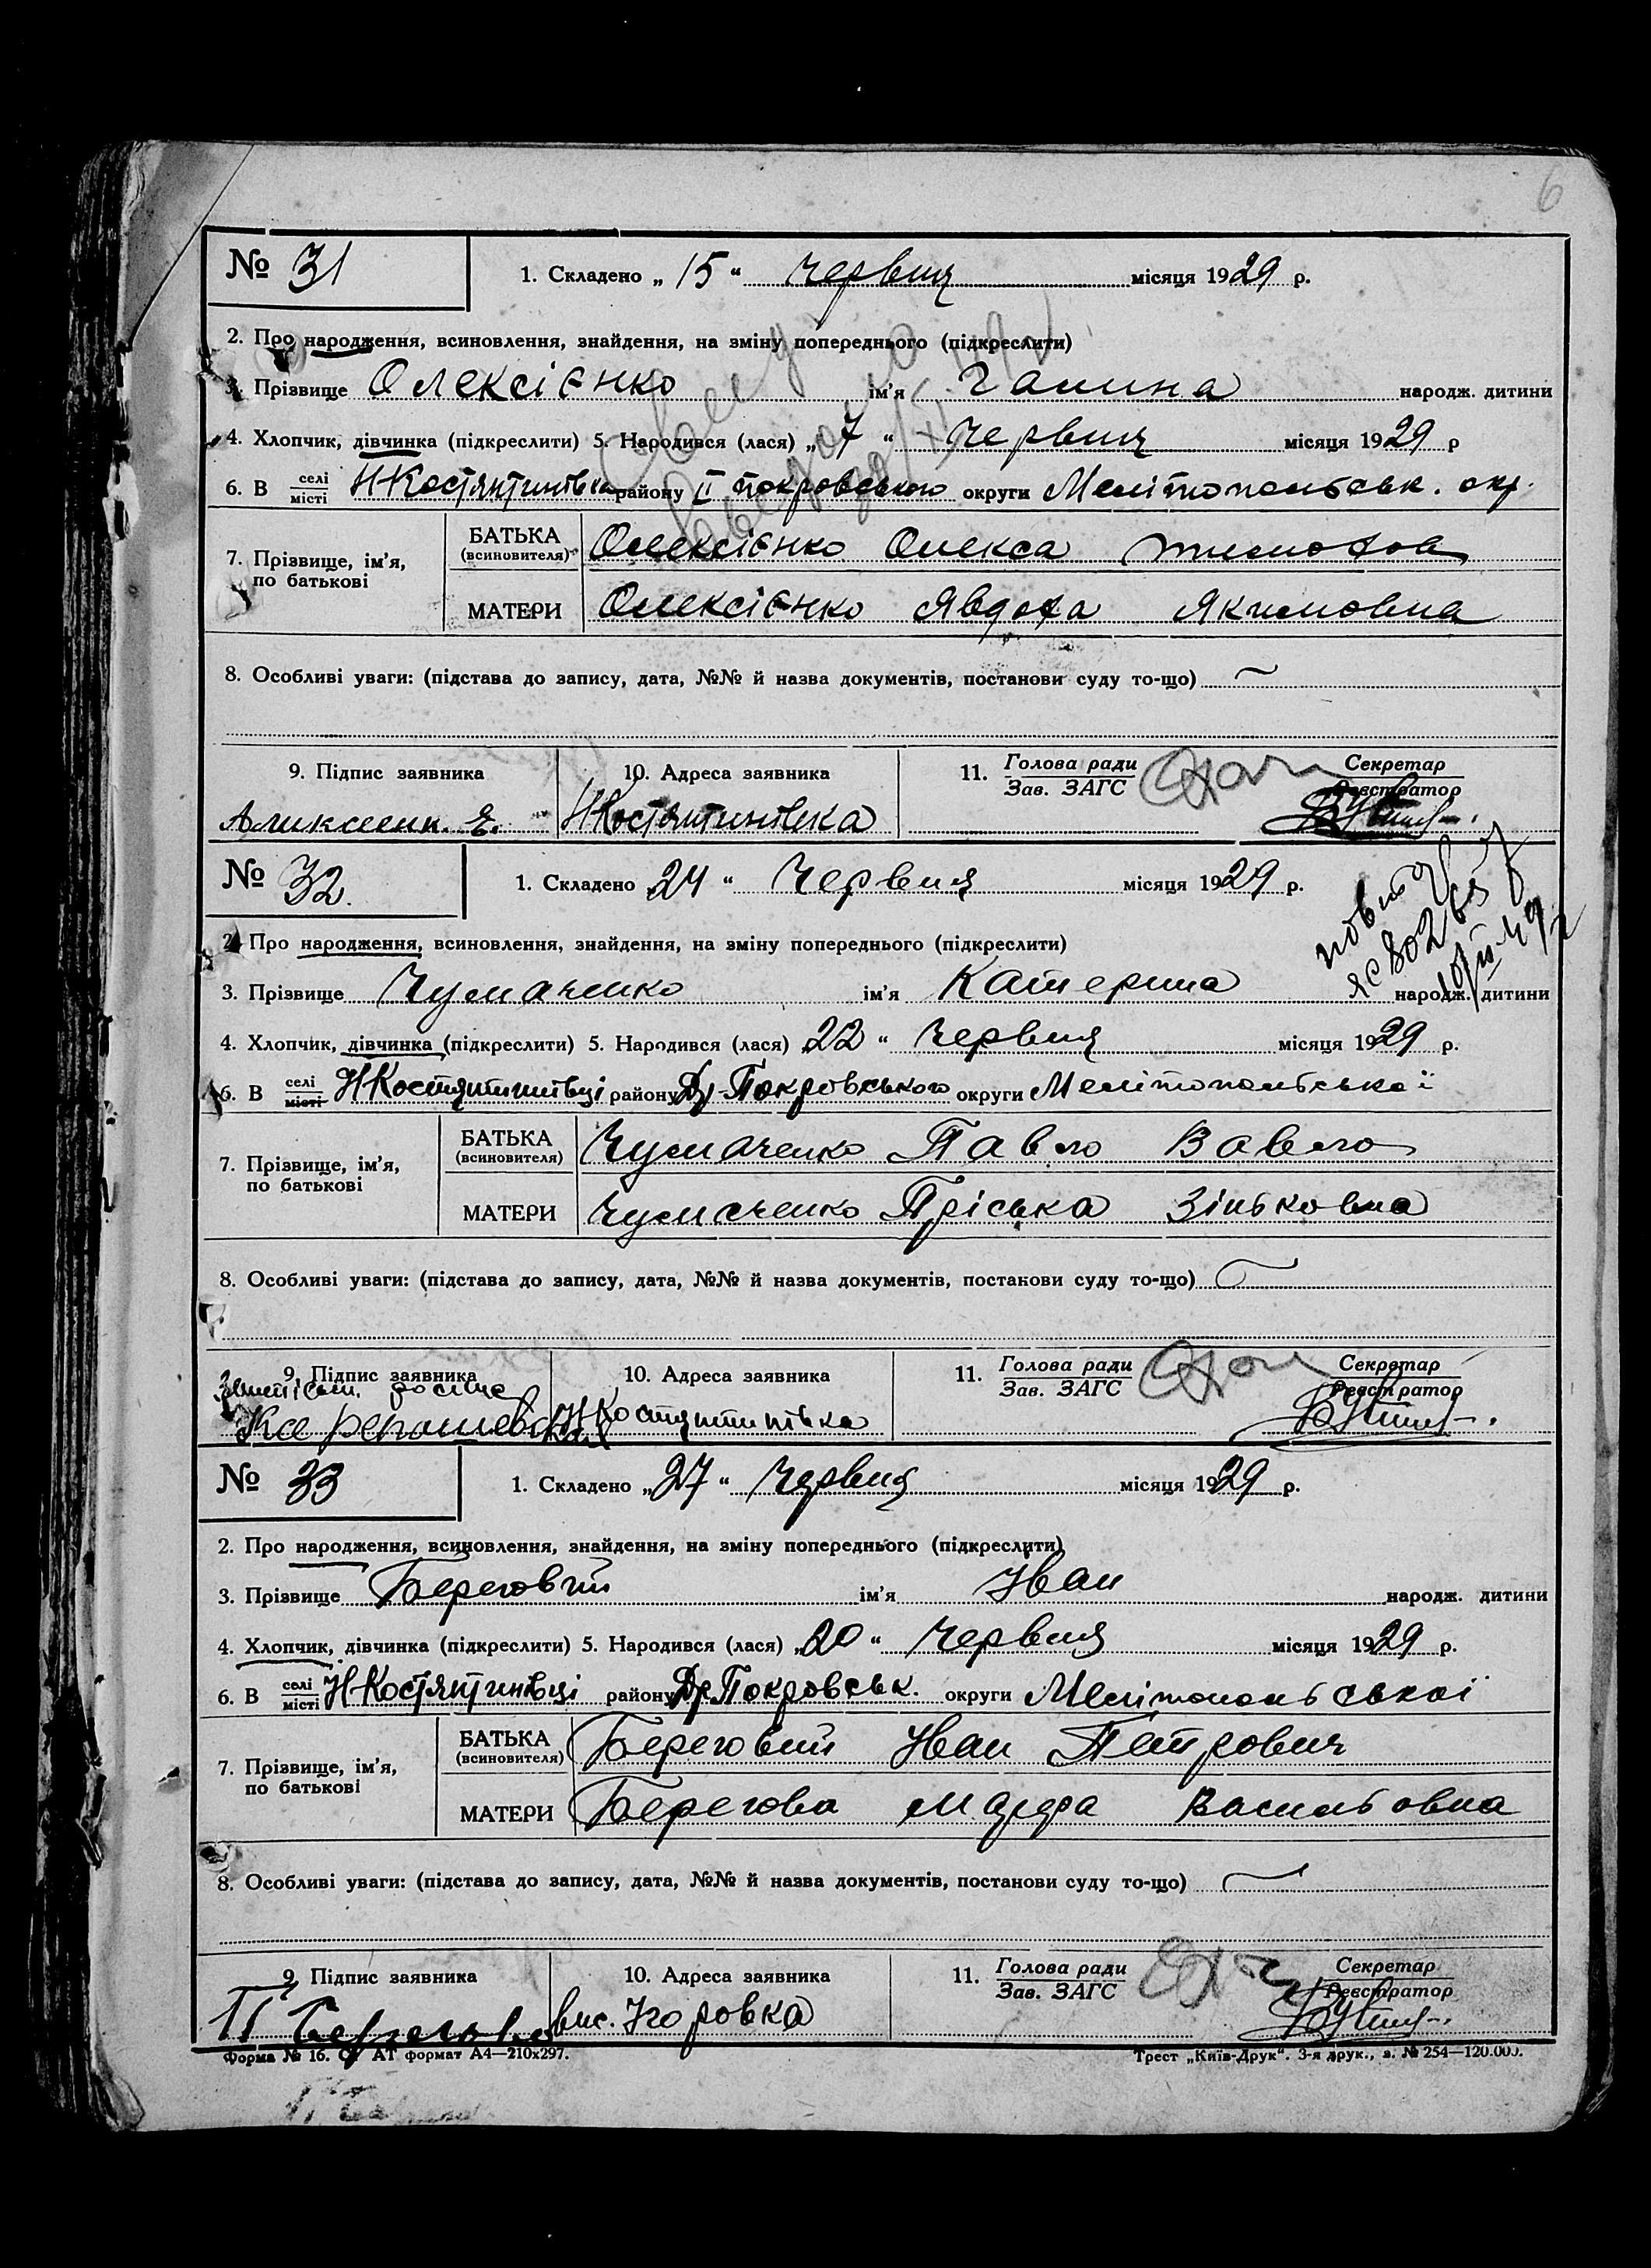 6
№ 31 1. Складено „ 15 “ червня місяця 1929 р.
2. Про народження, всиновлення, знайдення, на зміну попереднього (підкреслити)
3. Прізвище Олексієнко ім’я Галина народж. дитини
4. Хлопчик, дівчинка (підкреслити) 5. Народився (лася) „ 7 “ червня місяця 1929 р
6. В селі місті НКостянтинівка району II покровського округи Мелітопольськ. окр.
7. Прізвище, ім’я, по батькові
БАТЬКА (всиновителя) Олексієнко Олекса
МАТЕРИ Олексієнко Явдоха Якимовна
8. Особливі уваги: (підстава до запису, дата, №№ й назва документів, постанови суду то-що)
9. Підпис заявника 10. Адреса заявника 11. Голова ради Зав. ЗАГС Секретар Реєстратор
НКостянтинівка
№ 32. 1. Складено 24 “ Червня місяця 1929 р.
2. Про народження, всиновлення, знайдення, на зміну попереднього (підкреслити)
3. Прізвище Чумаченко ім’я Катерина народж. дитини
4. Хлопчик, дівчинка (підкреслити) 5. Народився (лася) 22 “ Червня місяця 1929 р.
6. В селі місті НКостянтинівці району Др-Покровського округи Мелітопольської
7. Прізвище, ім’я, по батькові
БАТЬКА (всиновителя) Чумаченко Павло
МАТЕРИ Чумаченко Пріська Зіньковна
8. Особливі уваги: (підстава до запису, дата, №№ й назва документів, постанови суду то-що)
9. Підпис заявника 10. Адреса заявника 11. Голова ради Зав. ЗАГС Секретар Реєстратор
НКостянтинівка
№ 33 1. Складено „ 27 “ Червня місяця 1929 р.
2. Про народження, всиновлення, знайдення, на зміну попереднього (підкреслити)
3. Прізвище Береговий ім’я Іван народж. дитини
4. Хлопчик, дівчинка (підкреслити) 5. Народився (лася) „ 20 “ Червня місяця 1929 р.
6. В селі місті Н-Костянтинівці району Др.Покровськ. округи Мелітопольської
7. Прізвище, ім’я, по батькові
БАТЬКА (всиновителя) Береговий Іван Петрович
МАТЕРИ Берегова Марфа Васильовна
8. Особливі уваги: (підстава до запису, дата, №№ й назва документів, постанови суду то-що)
9. Підпис заявника 10. Адреса заявника 11. Голова ради Зав. ЗАГС Секретар Реєстратор
вис. Ігоровка
Форма № 16. АТ формат А4—210х297. Трест „Київ-Друк“. 3-я друк., з. № 254—120.000.